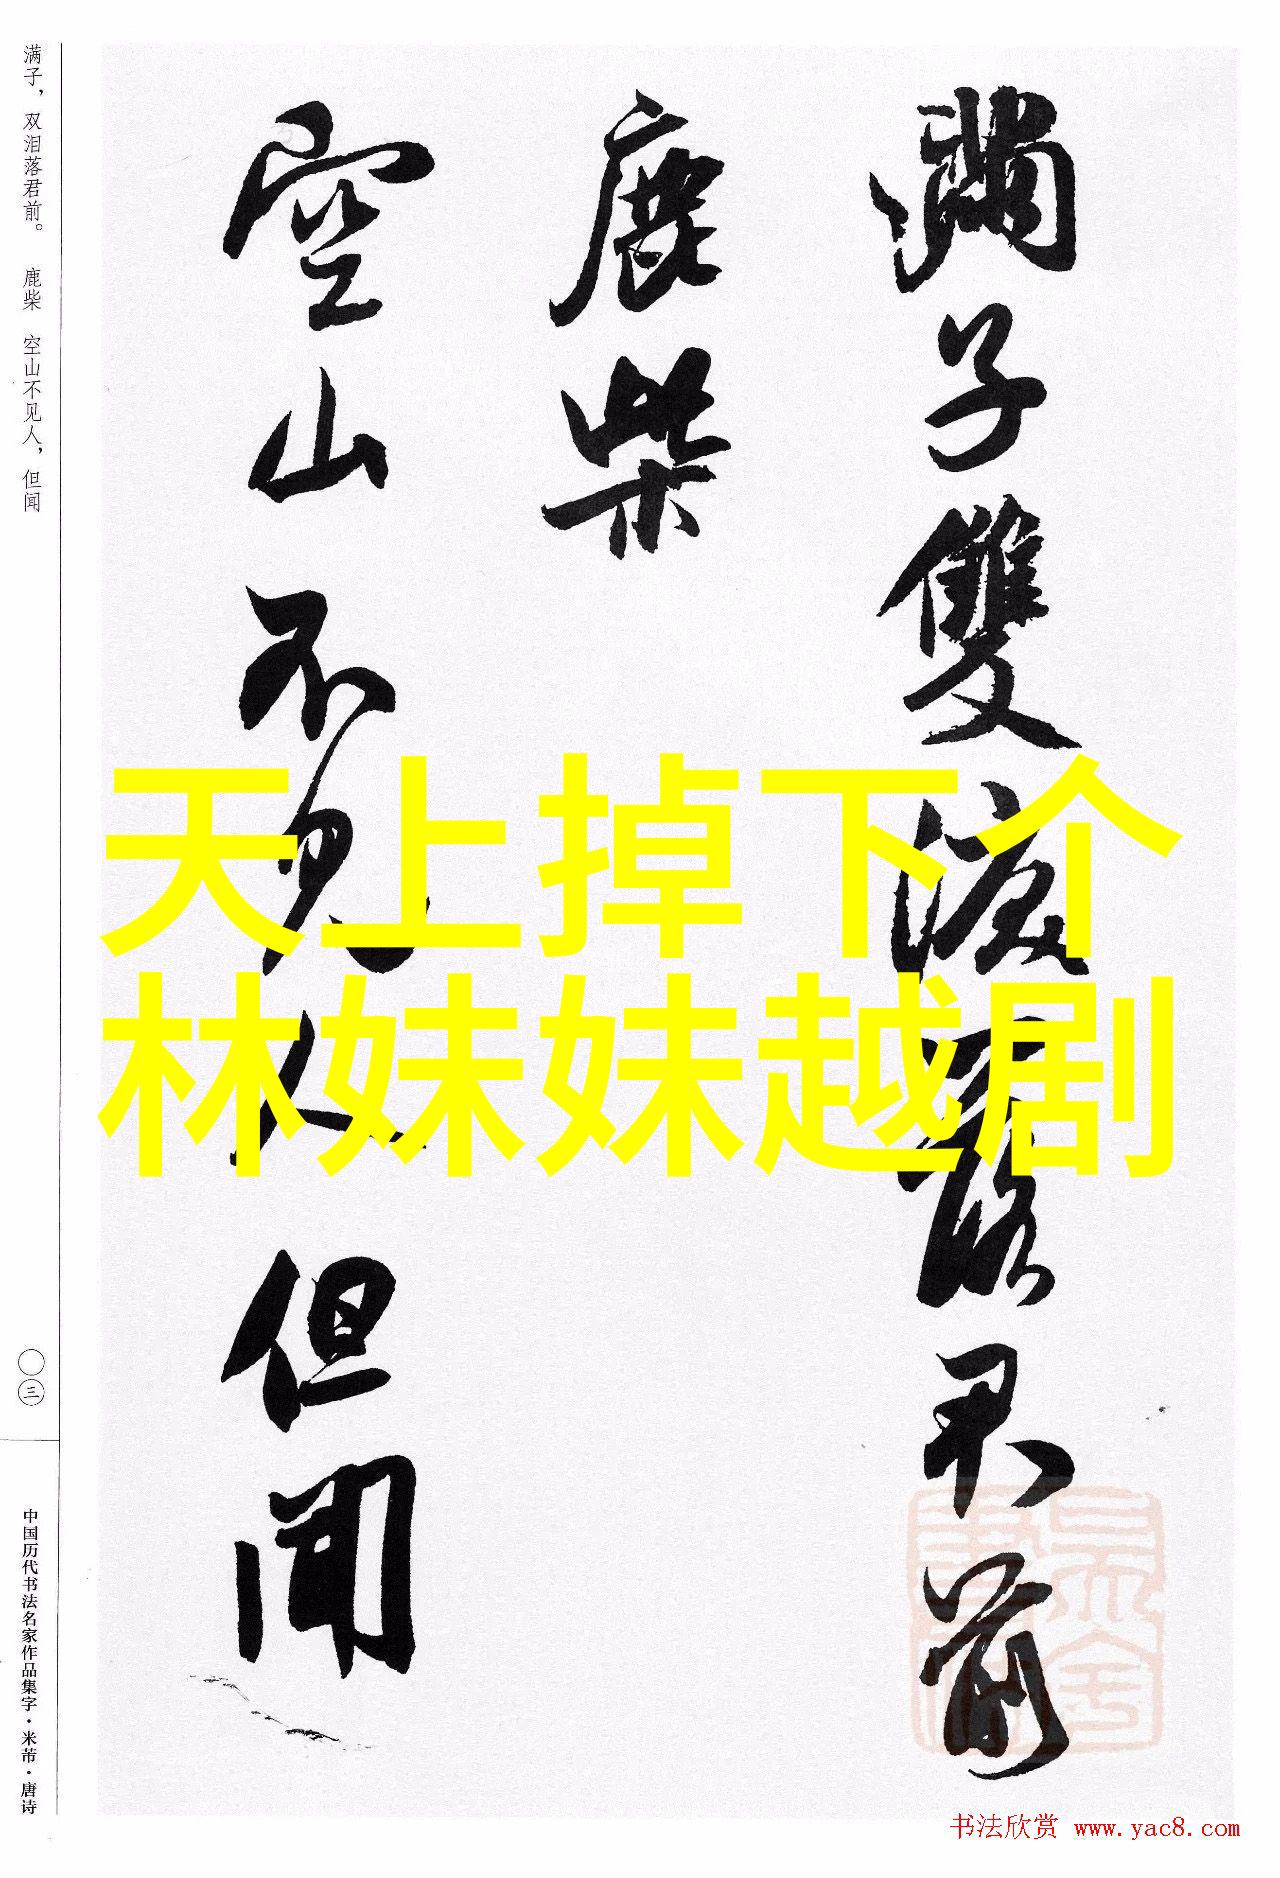 滿子雙淚落君前
鹿柴
空山不見人但聞
天上掉下个
林妹妹越剧
满子，双泪落君前。 鹿柴 空山不见人，但闻
〇三
中国历代书法名家作品集字·米芾·唐诗
书法欣赏 www.yac8.com